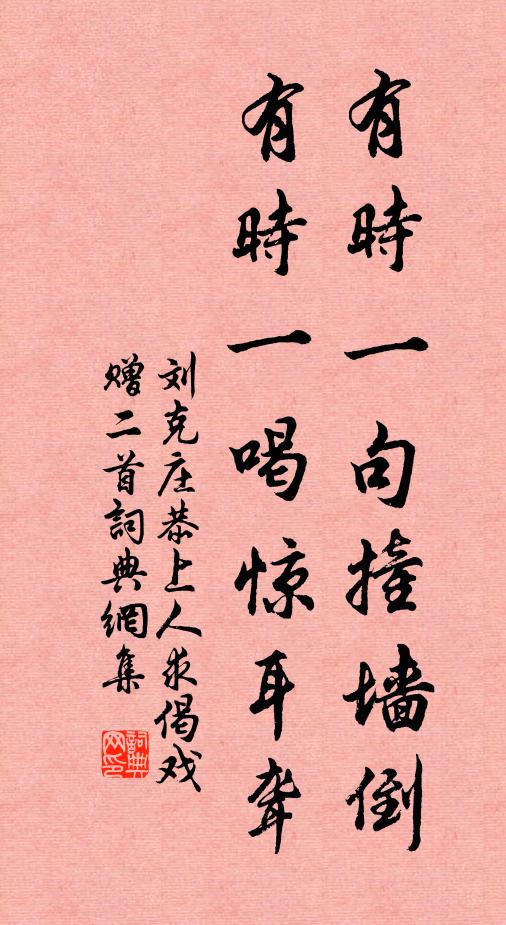 有時一句撞墙倒
有時一喝惊耳聋
刘克庄恭上人求偈戏
赠二首詞典網集
詞典网印